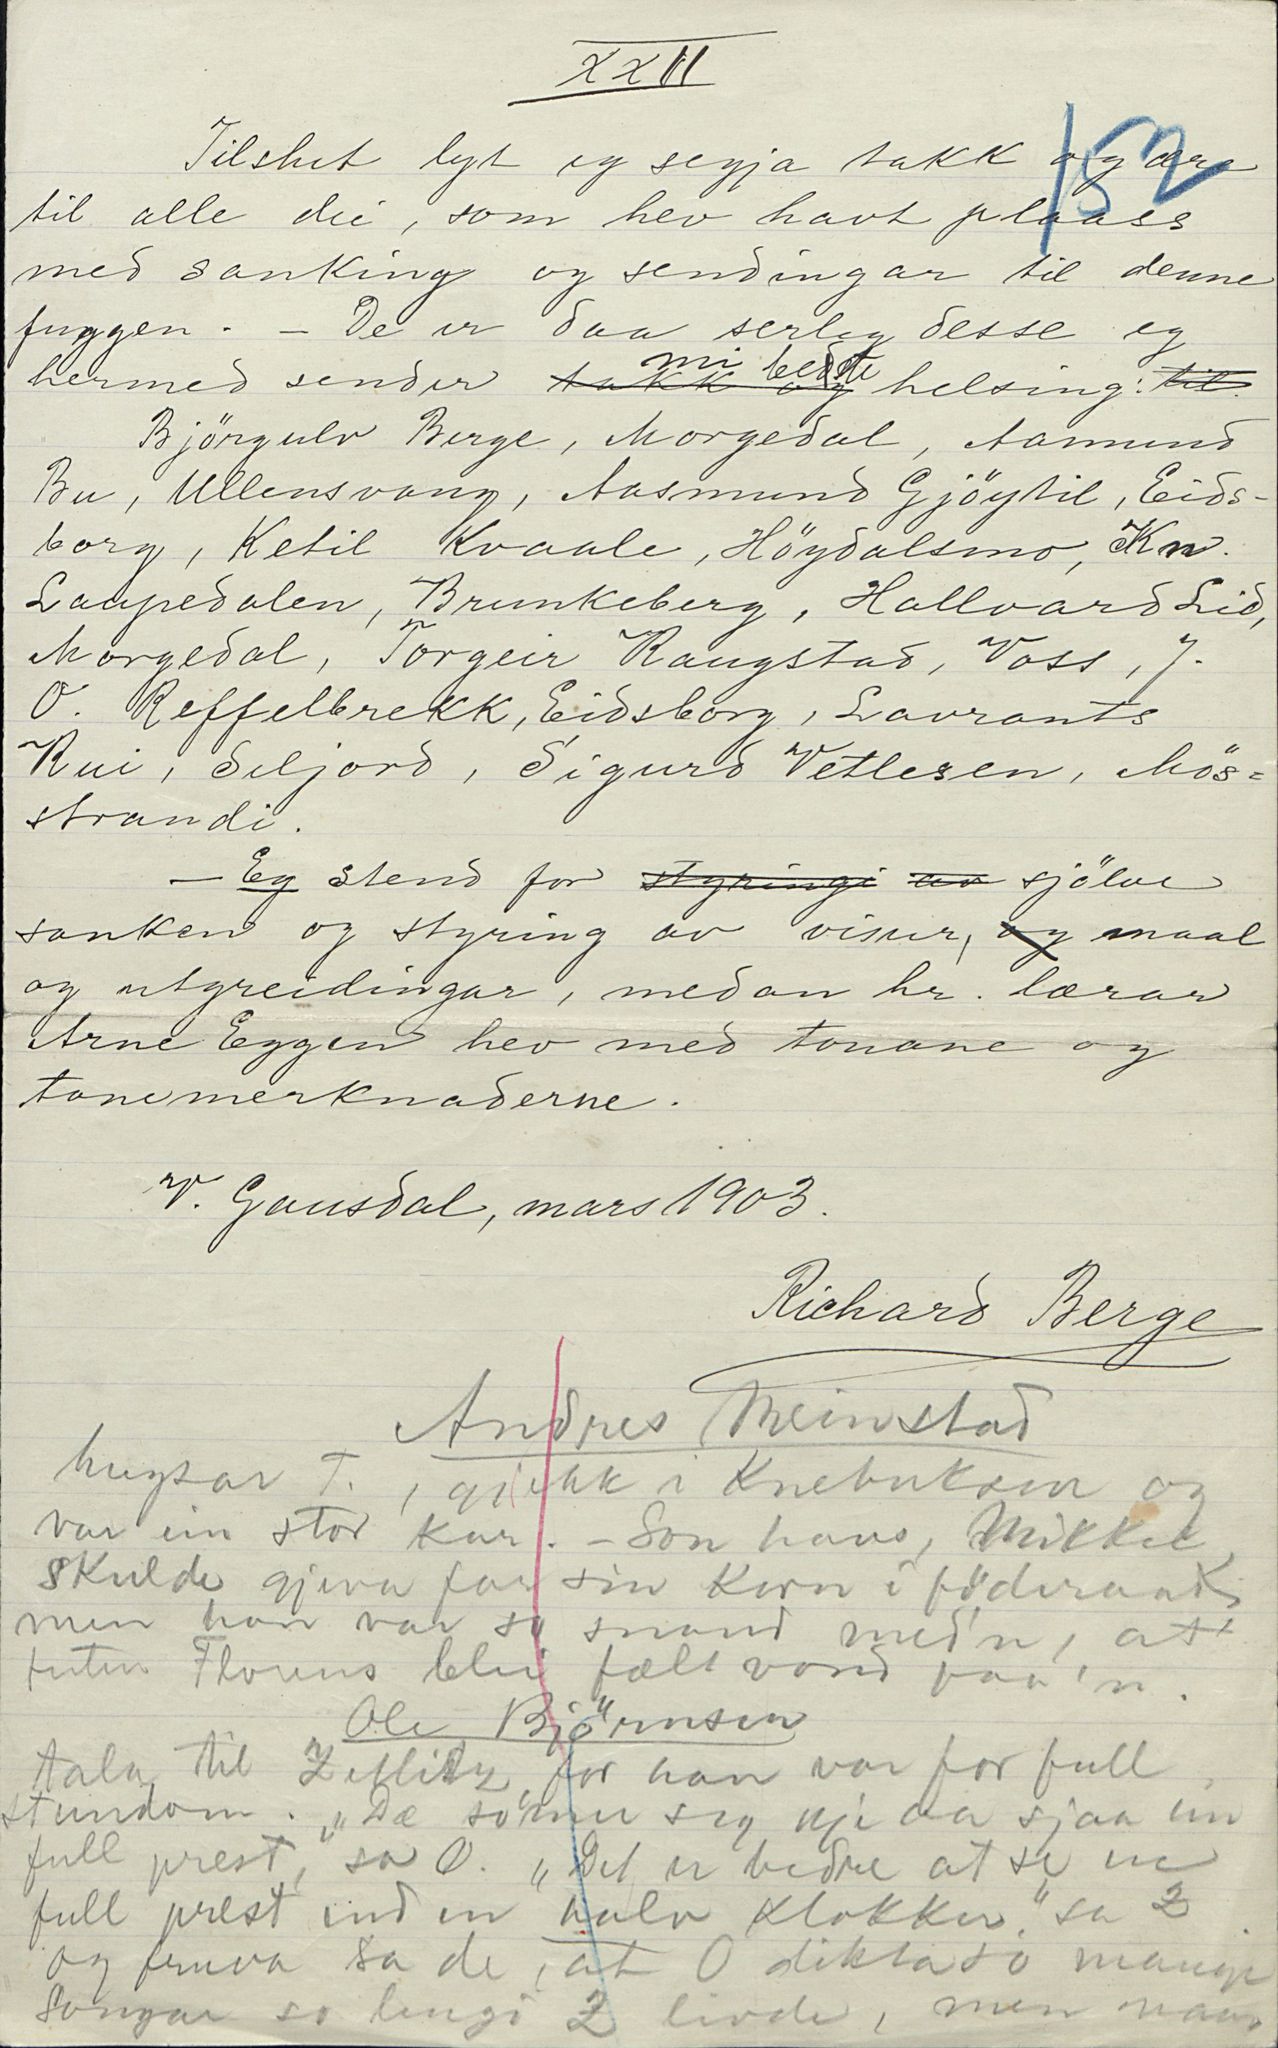 XXII
152
Tilslut lyt eg segja takk og æra
til alle dei, som hev havt plaass
med sanking og sendingar til denne
fuggen. – De er daa serleg desse eg
hermed sender takk og mi bedste helsing: til
Björgulv Berge, Morgedal, Aamund
Bu, Ullensvang, Aasmund Gjöytil, Eids-
borg, Ketil Kvaale, Höydalsmo, Kn.
Laupedalen, Brunkeberg, Hallvard Lid,
Morgedal, Torgeir Raugstad, Voss, J.
O. Reffelbrekk, Eidsborg, Lavrants
Rui, Seljord, Sigurd Vetlesen, Mös=
strandi.
– Eg stend for styringi av sjölve
sanken og styring av visur, og maal
og utgreidingar, medan hr. lærar
Arne Eggen hev med tonane og
tonemerknaderne.
V. Gausdal, mars 1903.
Richard Berge
Andres Meinstad
hugsar T., gjekk i Knebukser og
var ein stor kar. – Son hans, Mikkel
skulde gjeva far sin korn i föderaad,
men han var so snaud med'n, at
futen Florens blei fælt vond paa'n.
Ole Björnsen
tala til Zetlitz, for han var for full
stundom. „De sömer seg ikje aa sjaa ein
full prest," sa O. „Det er bedre at se en
full prest end en halv klokker." sa Z
og fruva sa de, at O dikta so mange
Songar so lengi Z livde, men